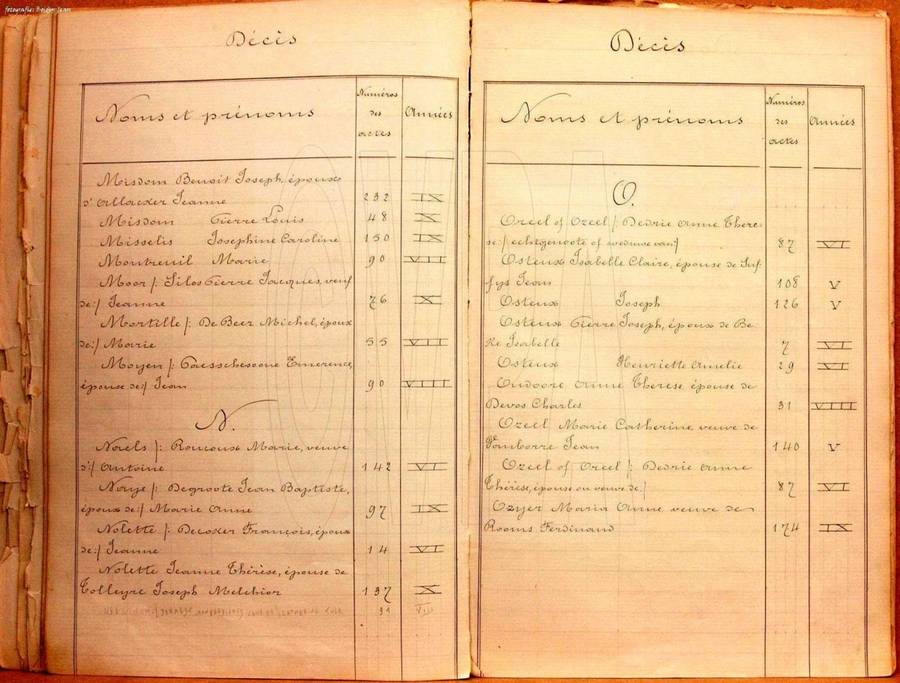 fotografie: Beidzer Jean
Décès
Noms et prénoms
Numéros
des
actes
Années
Misdom Benoit Joseph, époux
d'Allacker Jeanne 232 IX
Misdom Pierre Louis 48 X
Misselis Josephine Caroline 150 IX
Montreuil Marie 90 VII
Moor /: Silos Pierre Jacques, veuf
de :/ Jeanne 76 X
Mortille /: De Beer Michel, époux
de :/ Marie 55 VII
Moyen /: Emerence,
épouse de :/ Jean 90 VIII
N.
Naels /: Roucoux Marie, veuve
d':/ Antoine 142 VI
Naye /: Degroote Jean Baptiste,
époux de :/ Marie Anne 97 IX
Nolette /: Decoxer François, époux
de :/ Jeanne 14 VI
Nolette Jeanne Thérèse, épouse de
Tolleyre Joseph Melchior 137 X
91 VIII
Décès
Noms et prénoms
Numéros
des
actes
Années
O.
Orcel of Ozeel /: Dedrie Anne There-
se :/ echtgenoote of weduwe van :/ 87 VI
Osteux Isabelle Claire, épouse de Suf-
fys Jean 108 V
Osteux Joseph 126 V
Osteux Pierre Joseph, époux de Be-
ke Isabelle 7 VI
Osteux Henriette Amelie 29 VI
Oudoore Anne Therese épouse de
Devos Charles 31 VIII
Ozeel Marie Catherine veuve de
Vamborre Jean 140 V
Ozeel of Orcel /: Dedrie Anne
Thérèse, épouse ou veuve de :/ 87 VI
Ozyer Maria Anne veuve de
Rooms Ferdinand 174 IX